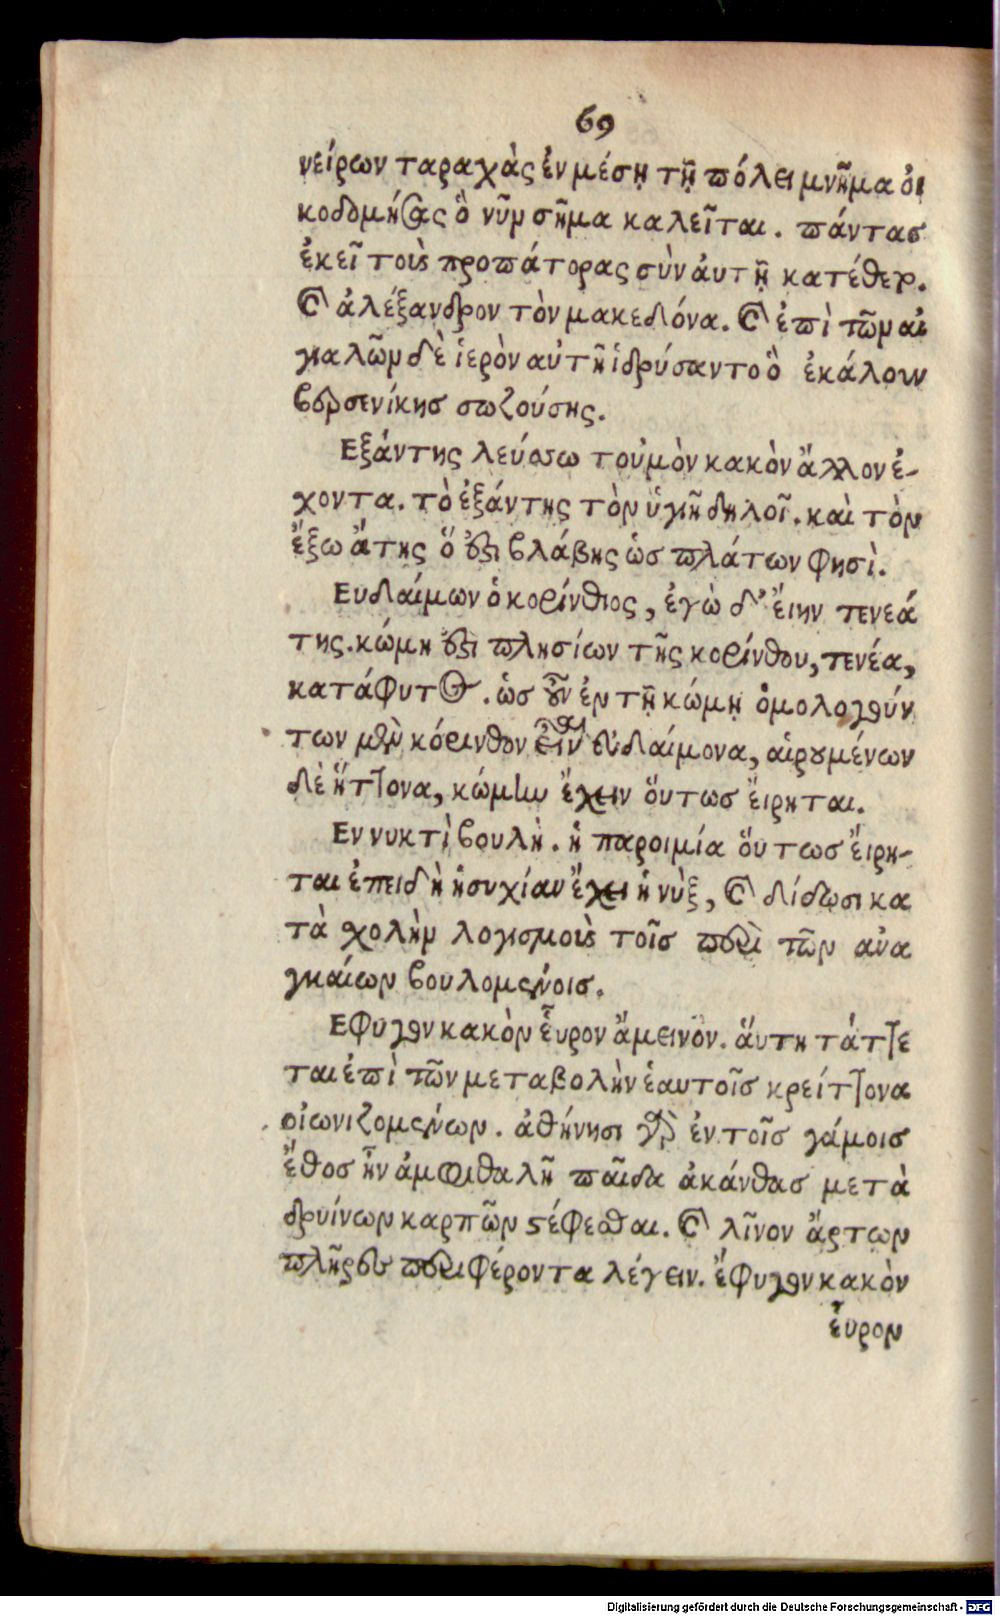 69
νείρων ταραχὰς ἐν μέσῃ τῇ πόλει μνῆμα οἰ
κοδομήσας ὃ νῦν σῆμα καλεῖται. πάντας
ἐκεῖ τοὺς προπάτορας σὺν ἀυτῇ κατέθεν.
καὶ ἀλέξανδρον τὸν μακεδόνα. καὶ ἐπὶ τῶν αἰ
γιαλῶν δὲ ἱερὸν αὐτῆ ἱδρύσαντο ὃ ἐκάλουν
βερσενίκης σωζούσης.
Εξάντης λεύσσω τοὐμὸν κακὸν ἄλλον ἔ-
χοντα. τὸ ἐξάντης τὸν ὑγιῆ δηλοῖ. καὶ τὸν
ἔξω ἄτης ὅ ἐστι βλάβης ὡς πλάτων φησὶ.
Ευδαίμων ὁ κορίνθιος, ἐγὼ δ' ἔιην τενεά
της. κώμη ἐστὶ πλησίων τῆς κορίνθου, τενέα,
κατάφυτος. ὡς οὖν ἐν τῇ κώμῃ ὁμολογούν
των μὲν κόρινθον εἶναι εὐδαίμονα, αἱρουμένων
δὲ ἥττονα, κώμην ἔχειν ὅυτως ἔιρηται.
Εν νυκτὶ βουλὴ. ἡ παροιμία ὅυτως ἔιρη-
ται ἐπειδὴ ἡσυχίαν ἔχει ἡ νὺξ, καὶ δίδωσι κα
τὰ σχολὴν λογισμοὺς τοῖς περὶ τῶν ἀνα
γκαίων βουλομένοις.
Εφυγον κακὸν ἕυρον ἄμεινον. ἅυτη τάττε
ται ἐπὶ τῶν μεταβολὴν ἑαυτοῖς κρείττονα
οἰωνιζομένων. ἀθήνησι γὰρ ἐν τοῖς γάμοις
ἔθος ἦν ἀμφιθαλῆ παῖδα ἀκάνθας μετὰ
δρυίνων καρπῶν στέφεσθαι. καὶ λῖνον ἄρτων
πλῆρες περιφέροντα λέγειν. ἔφυγον κακὸν
ἕυρον
Digitalisierung gefördert durch die Deutsche Forschungsgemeinschaft - DFG